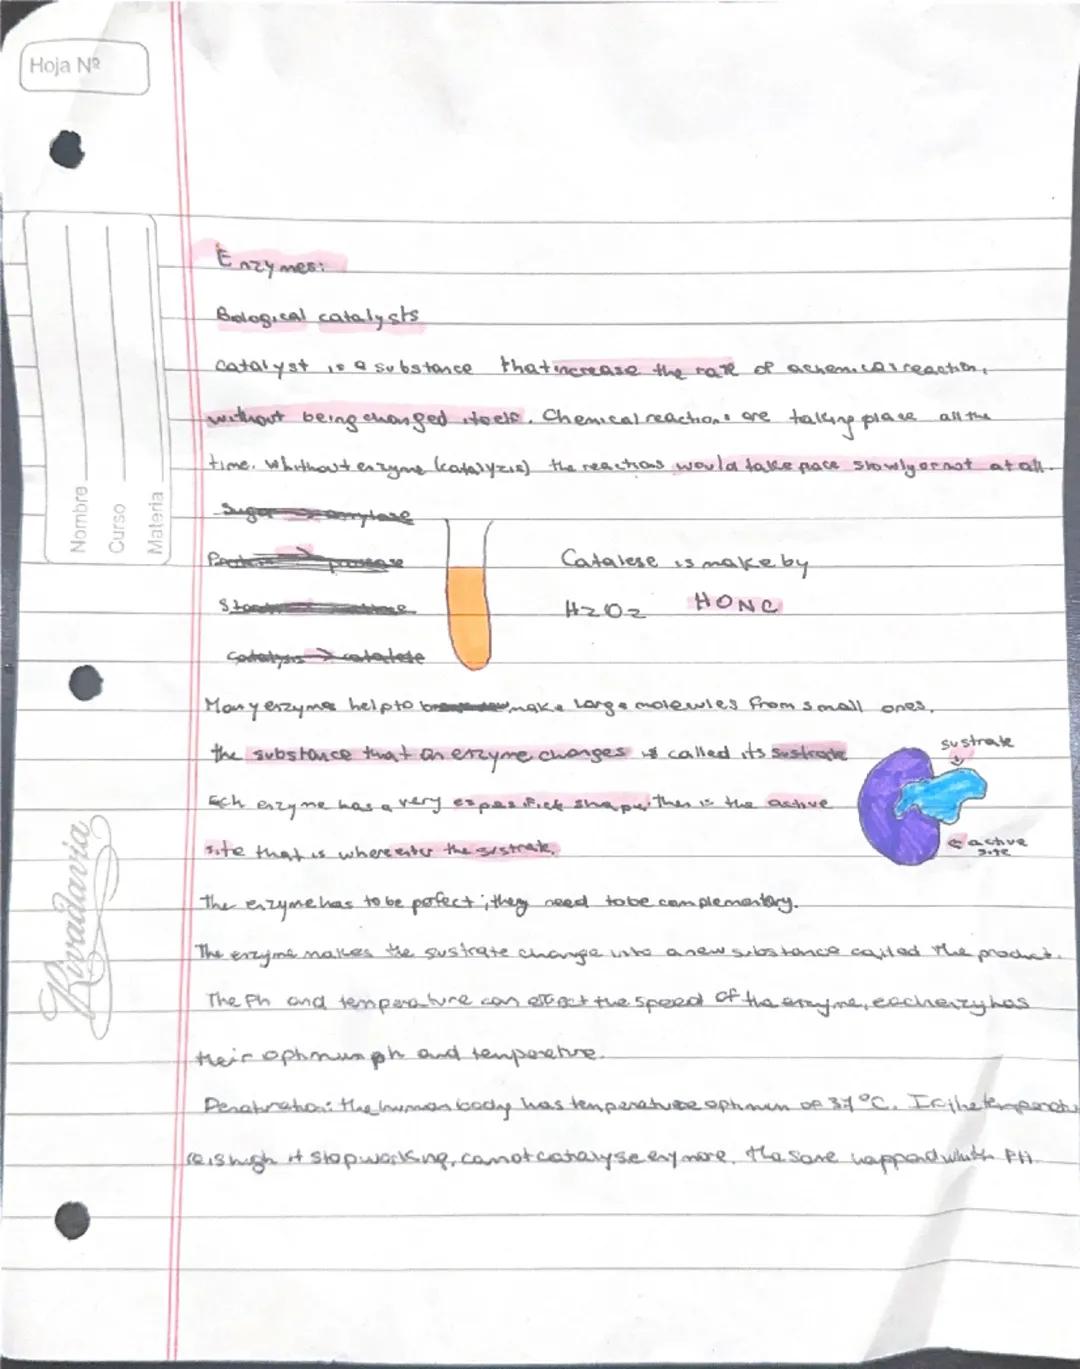 Hoja Nº
Nombre
Curso
Materia
Rivadavia
Enzymes:
Biological catalysts
catalyst is a substance that increase the rate of a chemical reaction,
without being changed itself. Chemical reactions are taking place all the
time. Whithout enzyme (catalyzis) the reactions would take pace slowly or not at all.
Sugar → amylase
Protein → protease
catalysis → catalese
Catalese is make by
H2O2 HONC
Many enzyme help to make large molewles from small ones.
the substance that an enzyme changes is called its sustrate
sustrate
Ech enzyme has a very espesifick shape. Ther is the active
site that is where enter the sustrate.
← active
site
The enzyme has to be perfect, they need to be complementary.
The enzyme makes the sustrate change into a new substance called the product.
The Ph and temperature can effect the speed of the enzyme, each enzy has
their optimum ph and temperature.
Denaturation: the human body has temperature optimum of 37 °C. If the temperatu
re is high it stop working, cannot catalyse enymore. the same happend whith PH.